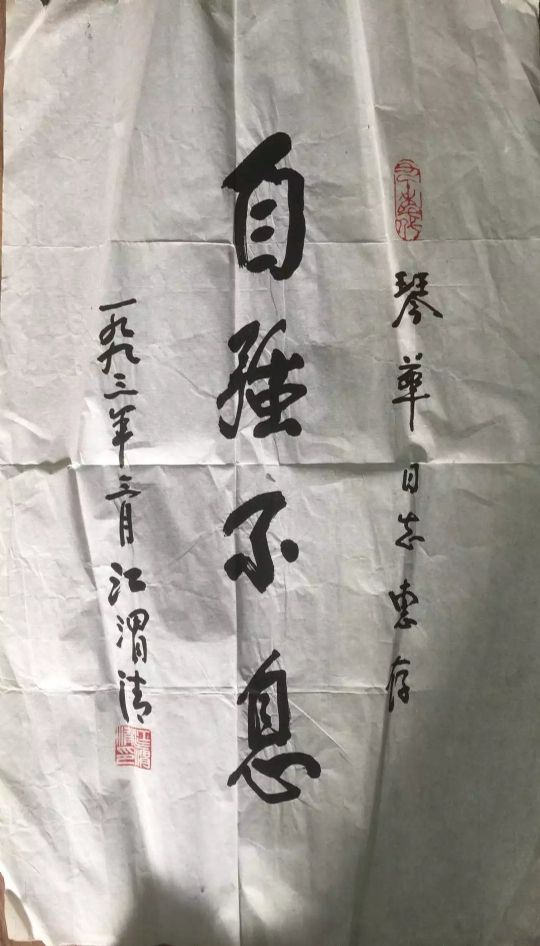 琴華同志惠存
自強不息
一九九三年三月江渭清